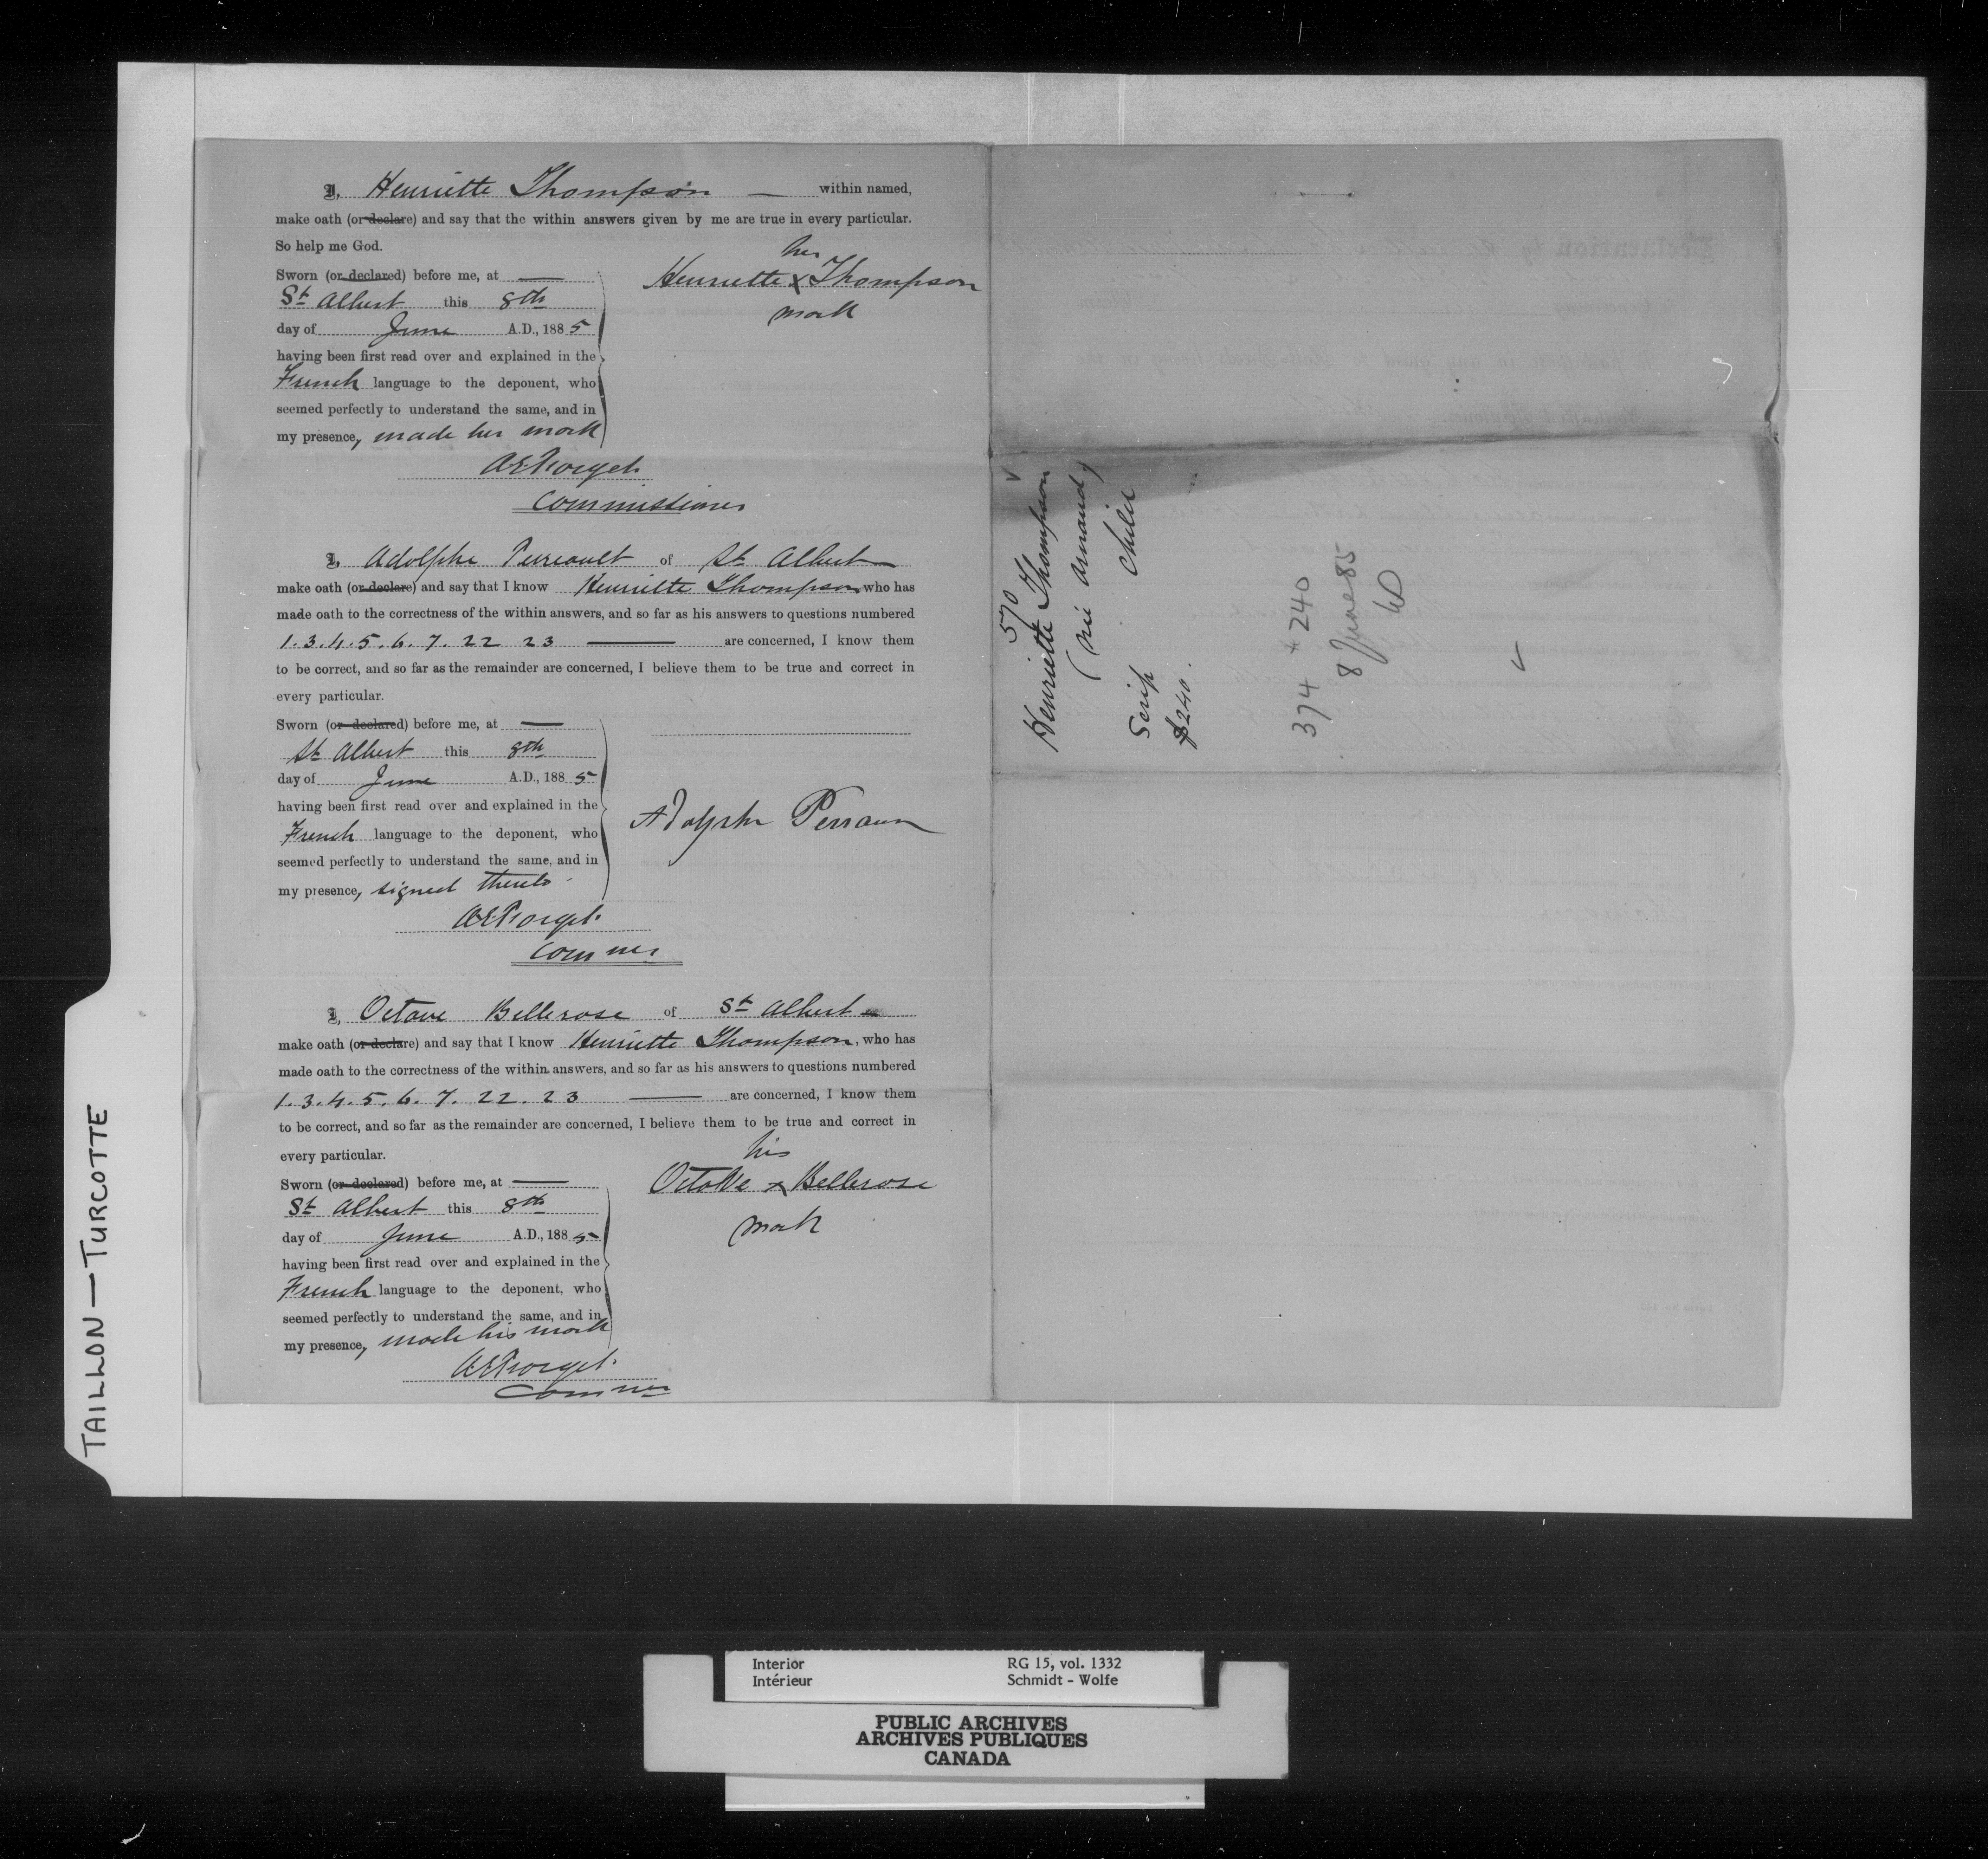 I, Henriette Thompson — within named,
make oath (or declare) and say that the within answers given by me are true in every particular.
So help me God.
Sworn (or declared) before me, at —
St Albert this 8th
day of June A.D., 1885
having been first read over and explained in the
French language to the deponent, who
seemed perfectly to understand the same, and in
my presence, made her mark
her
Henriette X Thompson
mark
AEForget
Commissioner
I, Adolphe Perreault of St Albert
make oath (or declare) and say that I know Henriette Thompson who has
made oath to the correctness of the within answers, and so far as his answers to questions numbered
1. 3. 4. 5. 6. 7. 22 23 — are concerned, I know them
to be correct, and so far as the remainder are concerned, I believe them to be true and correct in
every particular.
Sworn (or declared) before me, at —
St Albert this 8th
day of June A.D., 1885
having been first read over and explained in the
French language to the deponent, who
seemed perfectly to understand the same, and in
my presence, signed thereto
Adolphe
AEForget.
Commner
I, Octave Bellerose of St Albert
make oath (or declare) and say that I know Henriette Thompson, who has
made oath to the correctness of the within answers, and so far as his answers to questions numbered
1. 3. 4. 5. 6. 7. 22. 23 — are concerned, I know them
to be correct, and so far as the remainder are concerned, I believe them to be true and correct in
every particular.
Sworn (or declared) before me, at —
St Albert this 8th
day of June A.D., 1885
having been first read over and explained in the
French language to the deponent, who
seemed perfectly to understand the same, and in
my presence, made his mark
his
Octave X Bellerose
mark
AEForget.
Commner
570
Henriette Thompson
(née Arnaud)
Scrip Child
$240.
374 * 240
8 June 85
TAILLON — TURCOTTE
Interior RG 15, vol. 1332
Intérieur Schmidt - Wolfe
PUBLIC ARCHIVES
ARCHIVES PUBLIQUES
CANADA